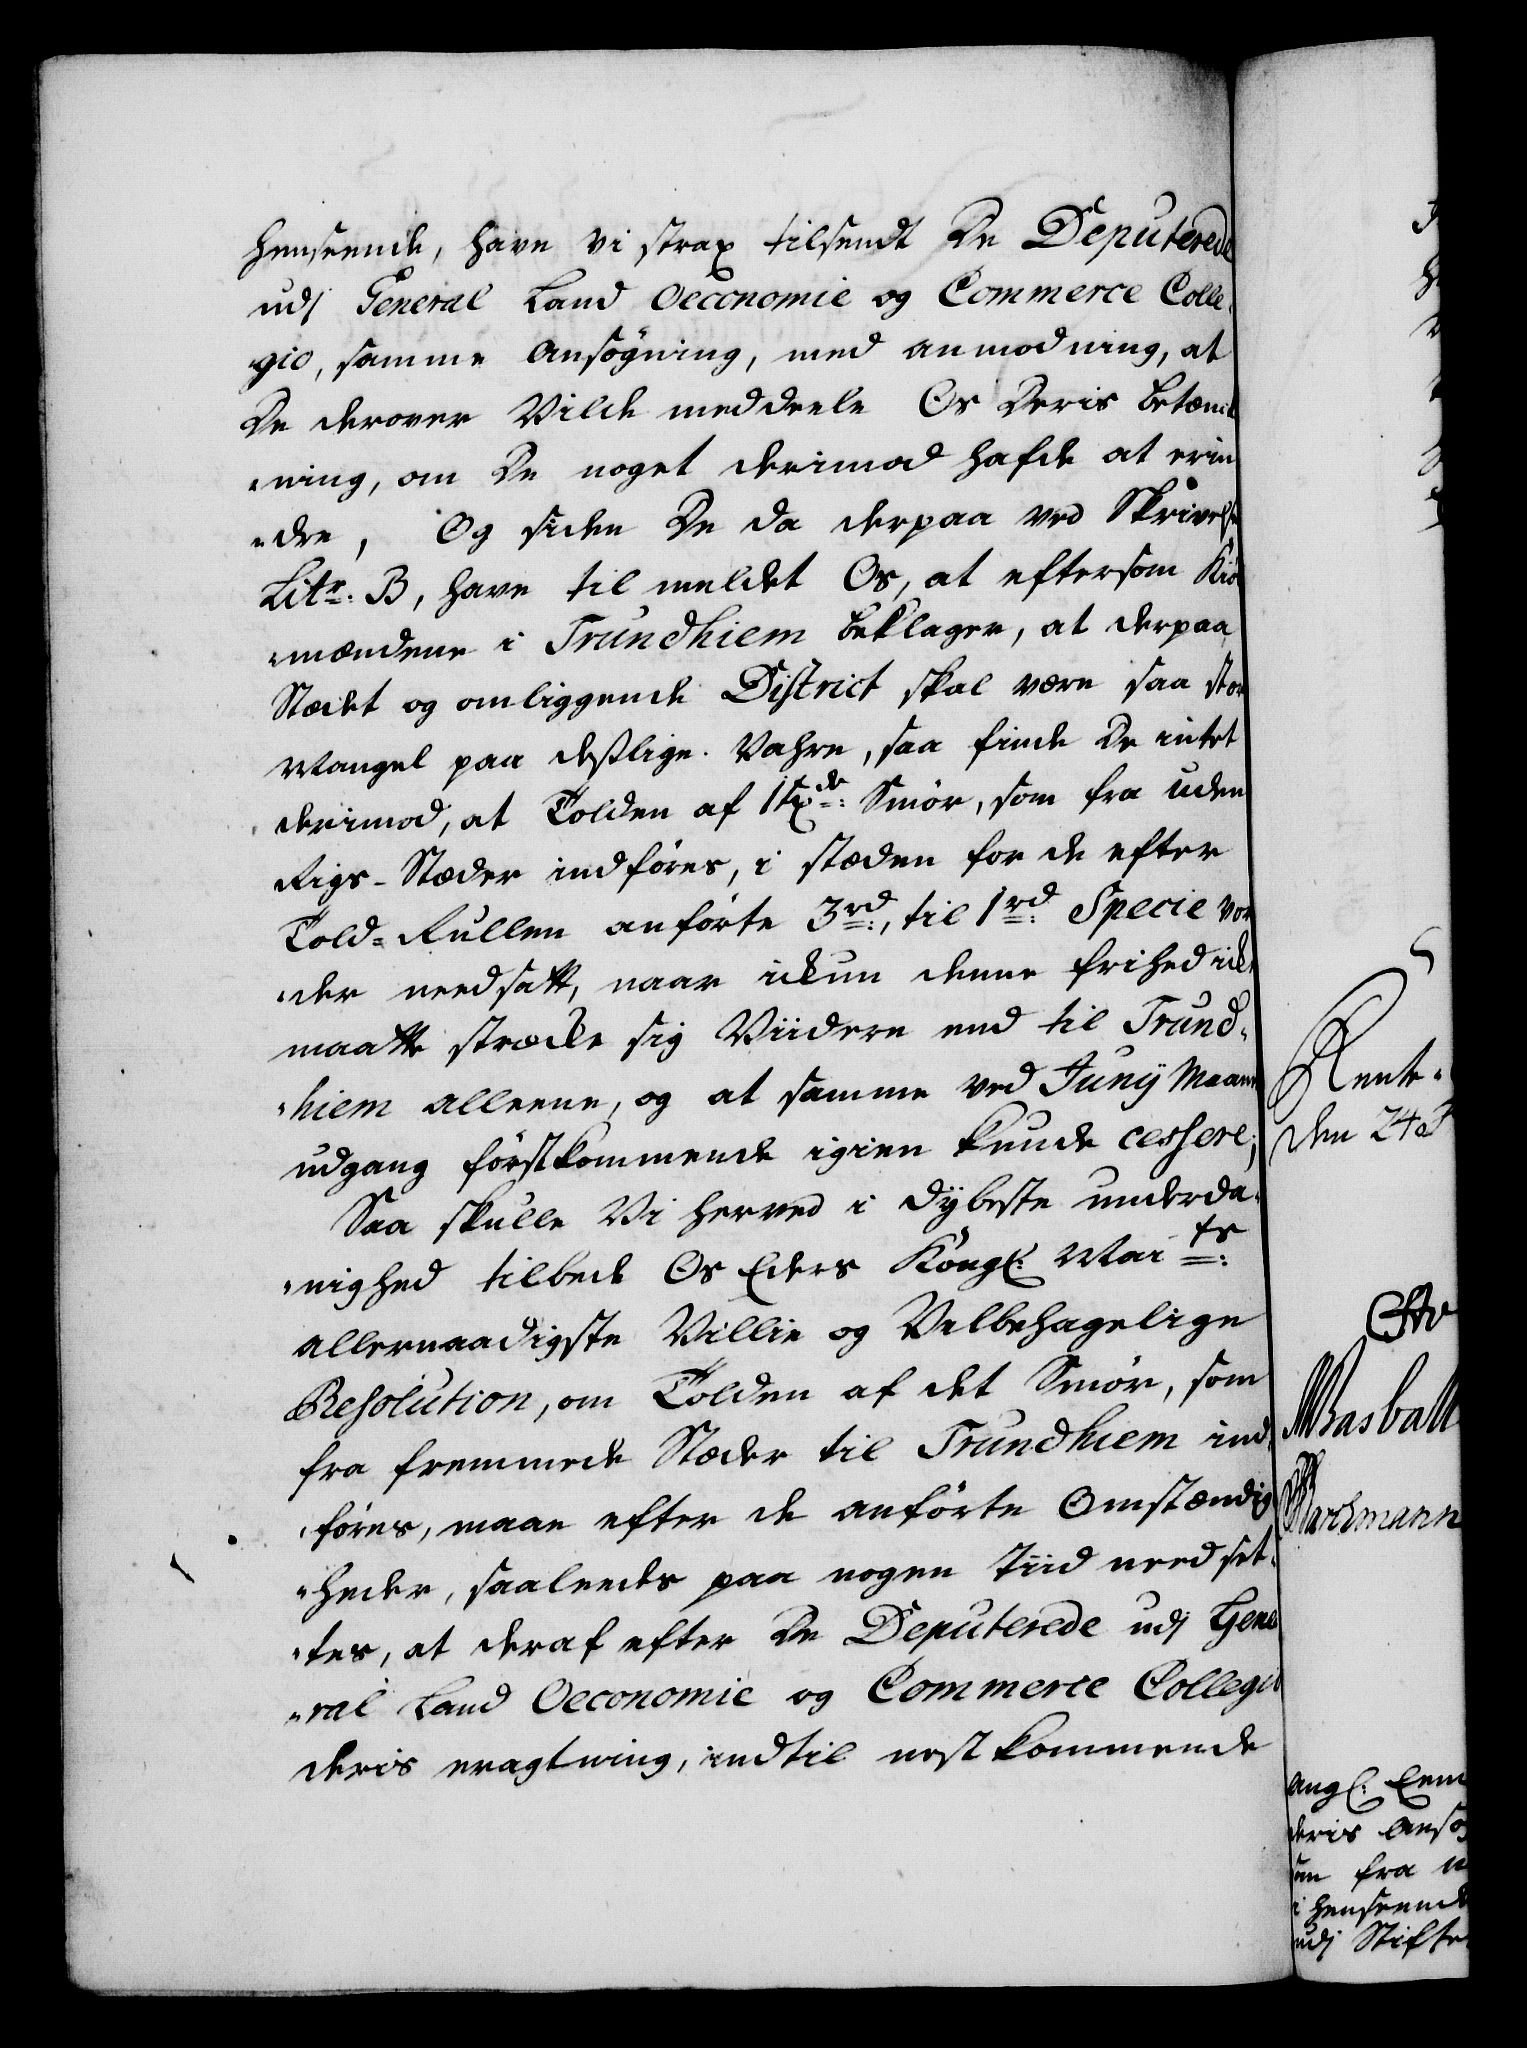 henseende, have vi strax tilsendt De Deputerede
udj General Land Oeconomie og Commerce Colle
gio, samme Ansøgning, med anmodning, at
De derover Vilde meddeele Os Deris betænk
ning, om De noget derimod hafde at erin
dre, Og siden De da derpaa ved Skrivelse
Litr: B, have til meldet Os, at eftersom Kiø
mændene i Trundhiem beklager, at derpaa
Stædet og omliggende District skal være saa stor
Mangel paa deslige Vahre, saa finde De intet
derimod, at Tolden af 1 Smør, som fra uden
Rigs-Stæder indføres, i stæden for de efter
Told-Rullen anførte 3rd:, til 1rd: Specie vor
der need satt, naar ickun denne frihed icke
maatte strecke sig Viidere end til Trund
hiem alleene, og at samme ved Junij Maan
udgang førstkommende igien kunde cessere;
Saa skulle Vi herved i dybeste underda
nighed tilbede Os Eders Kongl: Mai ts:
allernaadigste Villie og Velbehagelige
Resolution, om Tolden af det Smør, som
fra fremmede Stæder til Trundhiem ind
føres, maae efter de anførte Omstændig
heder, saaleedes paa nogen Tiid need set
tes, at deraf efter De Deputerede udj Gene
ral Land Oeconomie og Commerce Collegio
deris eragtning, indtil nest kommende
Rente
den 24d
Masball
angl: Eem
deris Ansøg
fra
i henseende
udj Stifte